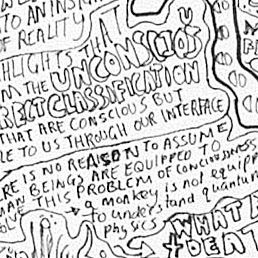 TO AN INSIG
OF REALITY
HLIGHTS THA
M THE UNCONSCIOUS
RECT CLASSIFICATION
THAT ARE CONSCIOUS BUT
LE TO US THROUGH OUR INTERFACE
RE IS NO REASON TO ASSUME
MAN BEINGS ARE EQUIPPED TO
VE THIS PROBLEM OF CONCIOUSNESS
a monkey is not equipp
to understand quantum
physics
WHAT A
DEAT